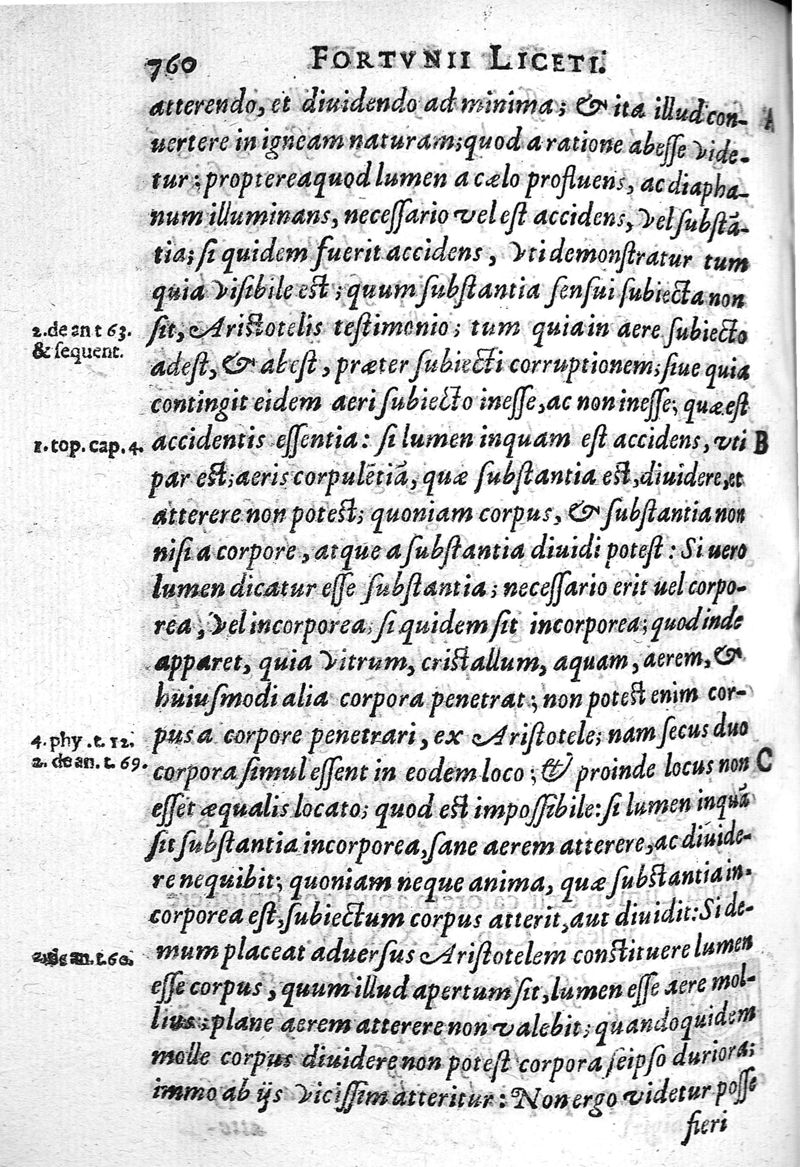 760 FORTVNII LICETI.
atterendo, et diuidendo ad minima; & ita illud con-
uertere in igneam naturam; quod a ratione abesse vide- A
tur; propterea quod lumen a cælo profluens, ac diapha-
num illuminans, necessario vel est accidens, vel substā-
tia; si quidem fuerit accidens, vti demonstratur tum
quia visibile est; quum substantia sensui subiecta non
2. de an t 63. sit, Aristotelis testimonio; tum quia in aere subiecto
& sequent. adest, & abest, præter subiecti corruptionem; siue quia
contingit eidem aeri subiecto inesse, ac non inesse; quæ est
1. top. cap. 4. accidentis essentia: si lumen inquam est accidens, vti B
par est; aeris corpulētiā, quæ substantia est, diuidere, et
atterere non potest; quoniam corpus, & substantia non
nisi a corpore, atque a substantia diuidi potest: Si uero
lumen dicatur esse substantia; necessario erit uel corpo-
rea, vel incorporea; si quidem sit incorporea; quod inde
apparet, quia vitrum, cristallum, aquam, aerem, &
huiusmodi alia corpora penetrat; non potest enim cor-
4. phy .t. 12. pus a corpore penetrari, ex Aristotele; nam secus duo
2. de an. t. 69. corpora simul essent in eodem loco; & proinde locus non C
esset æqualis locato; quod est impossibile: si lumen inquā
sit substantia incorporea, sane aerem atterere, ac diuide-
re nequibit; quoniam neque anima, quæ substantia in-
corporea est, subiectum corpus atterit, aut diuidit: Si de-
2. de an. t. 60. mum placeat aduersus Aristotelem constituere lumen
esse corpus, quum illud apertum sit, lumen esse aere mol-
lius; plane aerem atterere non valebit; quandoquidem
molle corpus diuidere non potest corpora seipso duriora;
immo ab ijs vicissim atteritur: Non ergo videtur posse
fieri